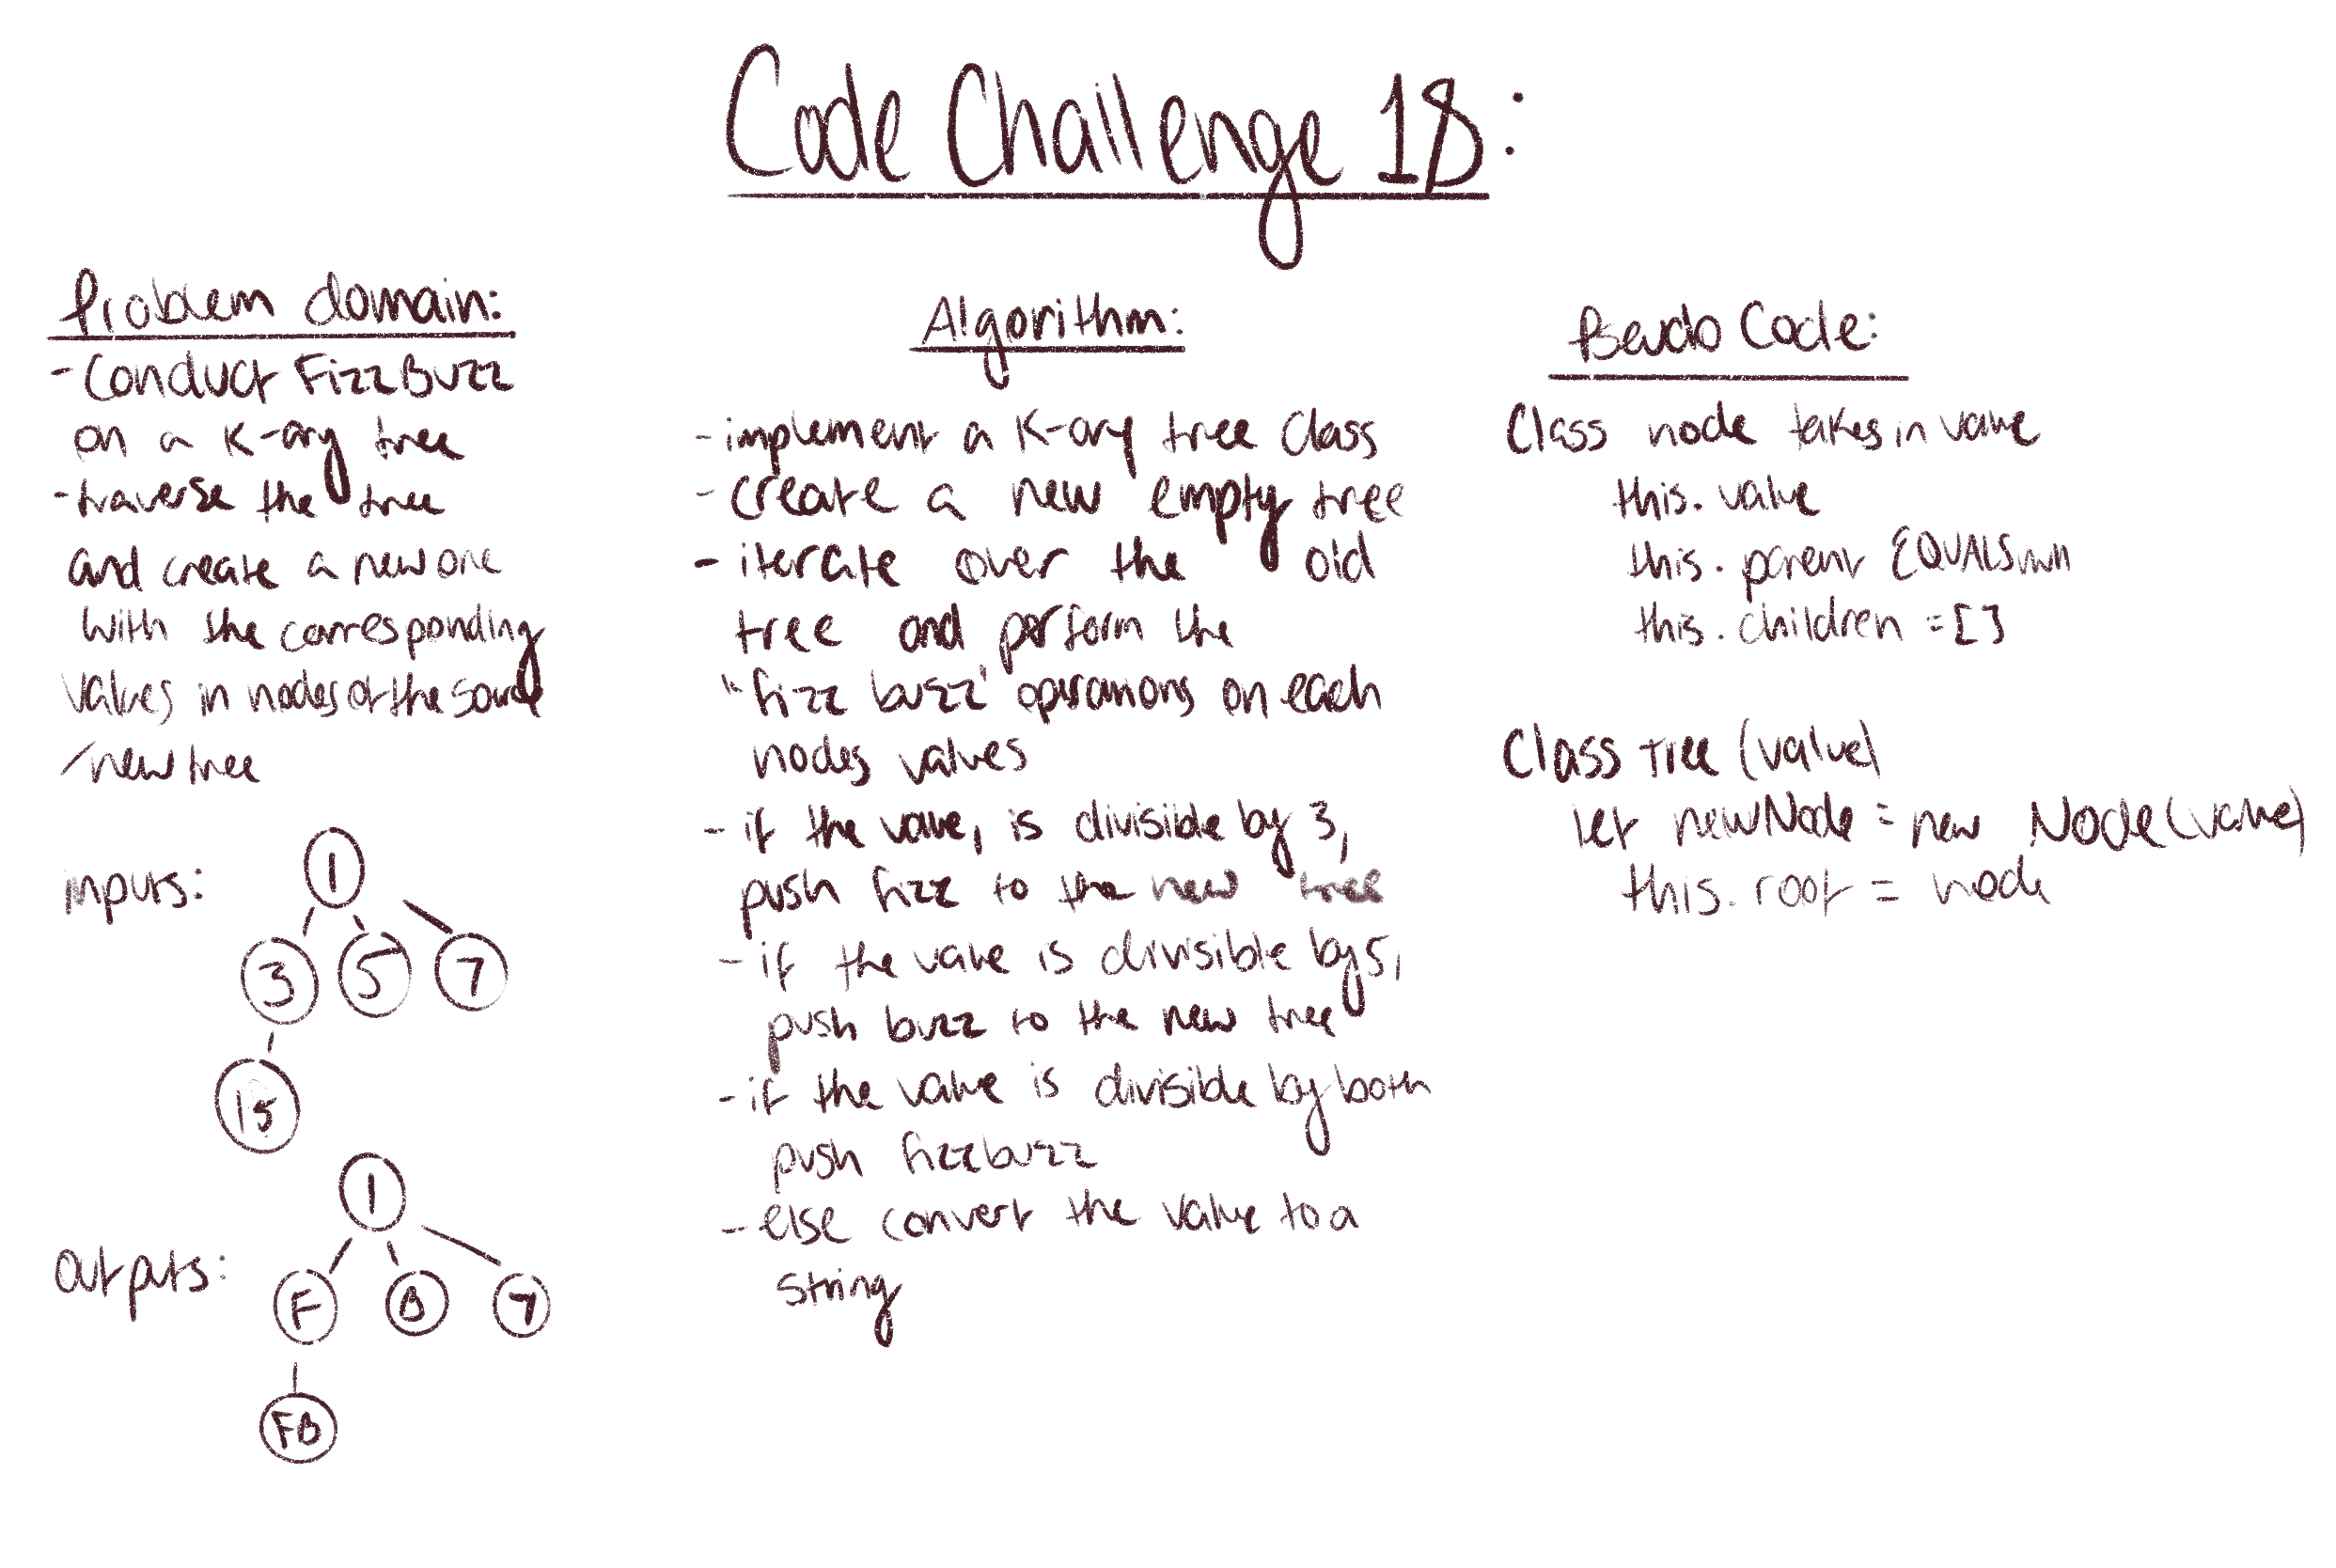 Code Challenge 18:
Problem domain:
- Conduct FizzBuzz
on a K-ary tree
- traverse the tree
and create a new one
with the corresponding
values in nodes of the source
/new tree
inputs:
1
3 5 7
15
outputs:
1
F B 7
FB
Algorithm:
- implement a K-ary tree Class
- create a new empty tree
- iterate over the old
tree and perform the
"fizz buzz" operations on each
nodes values
- if the value, is divisible by 3,
push fizz to the new tree
- if the value is divisible by 5,
push buzz to the new tree
- if the value is divisible by both
push fizzbuzz
- else convert the value to a
string
Pseudo Code:
Class node takes in value
this.value
this.parent EQUALS
this.children = []
Class tree (value)
let newNode = new Node(value)
this.root = node